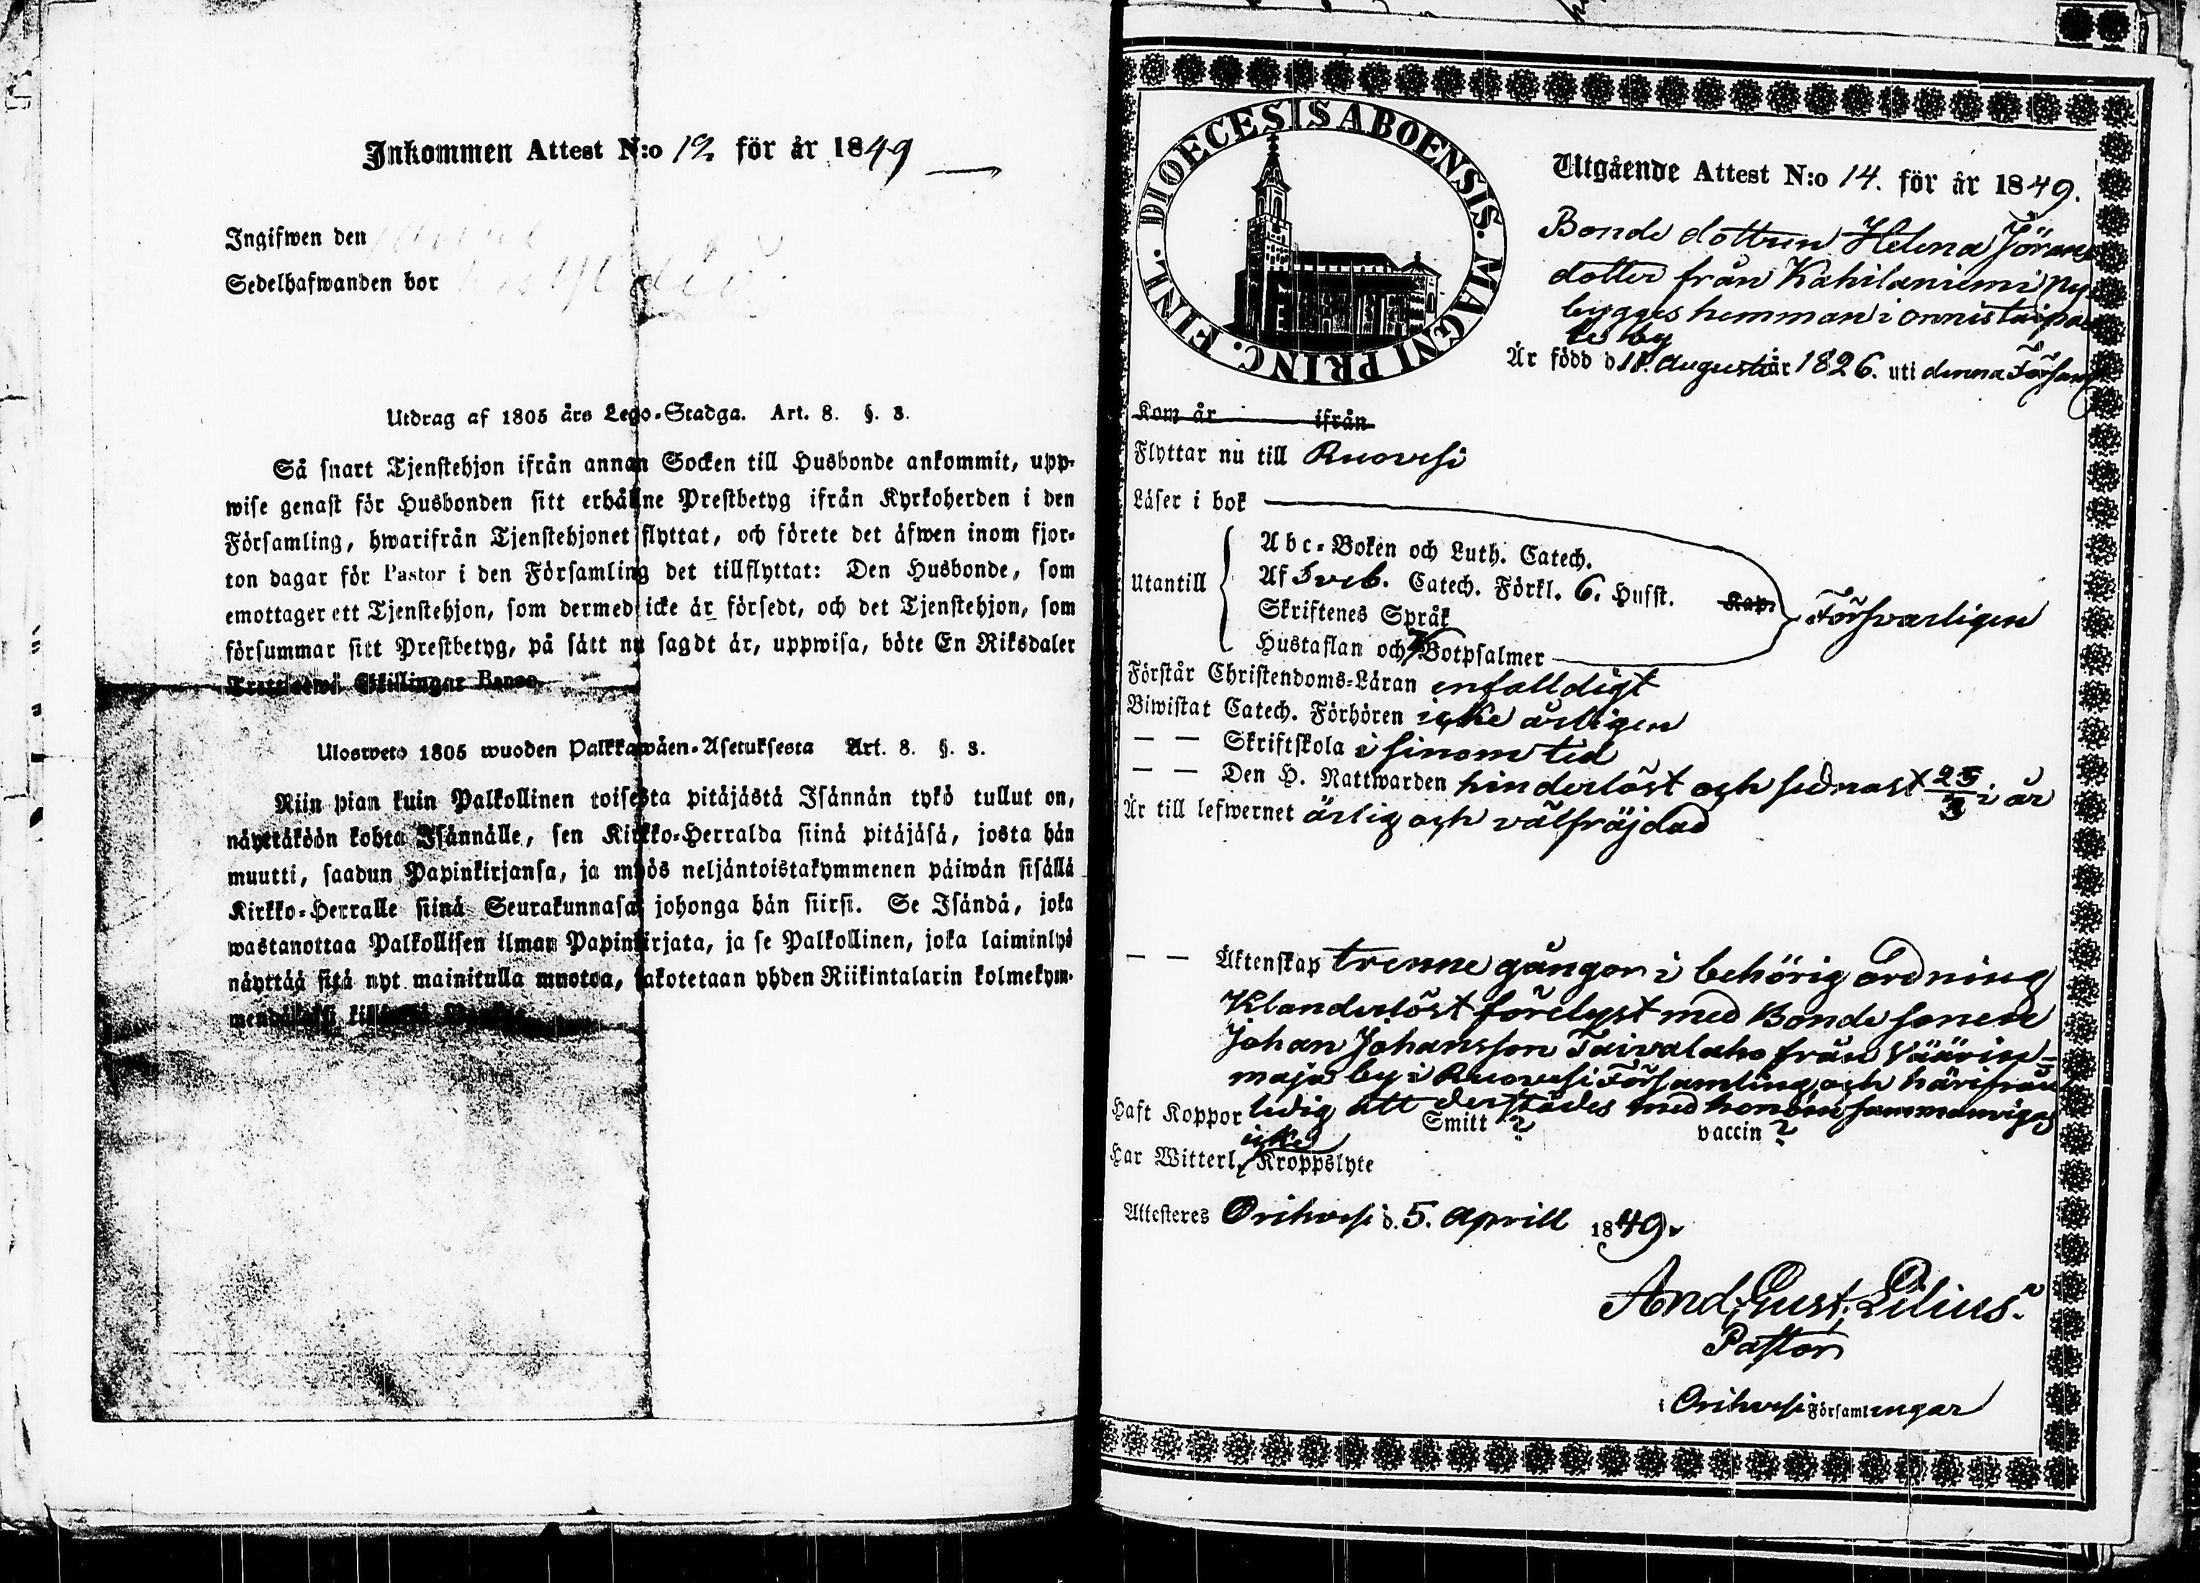 Inkommen Attest N:o 12 för år 1849
Ingifwen den
Sedelhafwanden bor
Utdrag af 1805 års Lego-Stadga. Art. 8. §. 3.
Så snart Tjenstehjon ifrån annan Socken till Husbonde ankommit, upp-
wise genast för Husbonden sitt erhållne Prestbetyg ifrån Kyrkoherden i den
Församling, hwarifrån Tjenstehjonet flyttat, och förete det äfwen inom fjor-
ton dagar för Pastor i den Församling det tillflyttat: Den Husbonde, som
emottager ett Tjenstehjon, som dermed icke är försedt, och det Tjenstehjon, som
försummar sitt Prestbetyg, på sätt nu sagdt är, uppwisa, böte En Riksdaler
Trettiotwå Skillingar Banco.
Ulosweto 1805 wuoden Palkkawäen-Asetuksesta Art. 8. §. 3.
Niin pian kuin Palkollinen toisesta pitäjästä Isännän tykö tullut on,
näyttäköön kohta Isännälle, sen Kirkko-Herralda siinä pitäjäsä, josta hän
muutti, saadun Papinkirjansa, ja myös neljäntoistakymmenen päiwän sisällä
Kirkko-Herralle siinä Seurakunnasa johonga hän siirsi. Se Isändä, joka
wastanottaa Palkollisen ilman Papinkirjata, ja se Palkollinen, joka laiminlyö
näyttää sitä nyt mainitulla muotoa, sakotetaan yhden Riikintalarin kolmekym-
DIOECESIS ABOENSIS. MAGNI PRINC. FINL.
Utgående Attest N:o 14. för år 1849.
Bonde dottren Helena Jörans
dotter från Kahilaniemi ny
bygges hemman i Onnistaipa
le by
Är född d 18. Augusti år 1826. uti denna Förs
Kom år ifrån
Flyttar nu till Ruovesi
Läser i bok
Utantill
Abc-Boken och Luth. Catech.
Af Sveb. Catech. Förkl. 6. Husst. Kap.
Skriftenes Språk
Hustaflan och 7 Botpsalmer
Försvarligen
Förstår Christendoms-Läran enfalldigt
Biwistat Catech. Förhören icke årligen
— — Skriftskola i sinom tid
— — Den H. Nattwarden hinderlöst och sednast 25/3 i år
Är till lefwernet ärlig och välfräjdad
— — Äktenskap trenne gångor i behörig ordning
Klanderlöst förelyst med Bonde sonen
Johan Johansson Taivalaho från Väärin-
maja by i Ruovesi Församling och härifrån
ledig att derstädes med honom sammanvigas
Haft Koppor Smitt ? vaccin ?
Har Witterl. icke Kroppslyte
Attesteres Orihvesi d. 5. Aprill 1849.
And. Gust. Lilius.
Pastor
i Orihvesi Församlingar